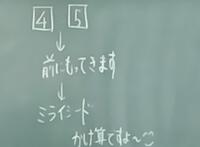 4 5
↓
前にもってきます
↓
ミラクシード
かけ算ですよ〜